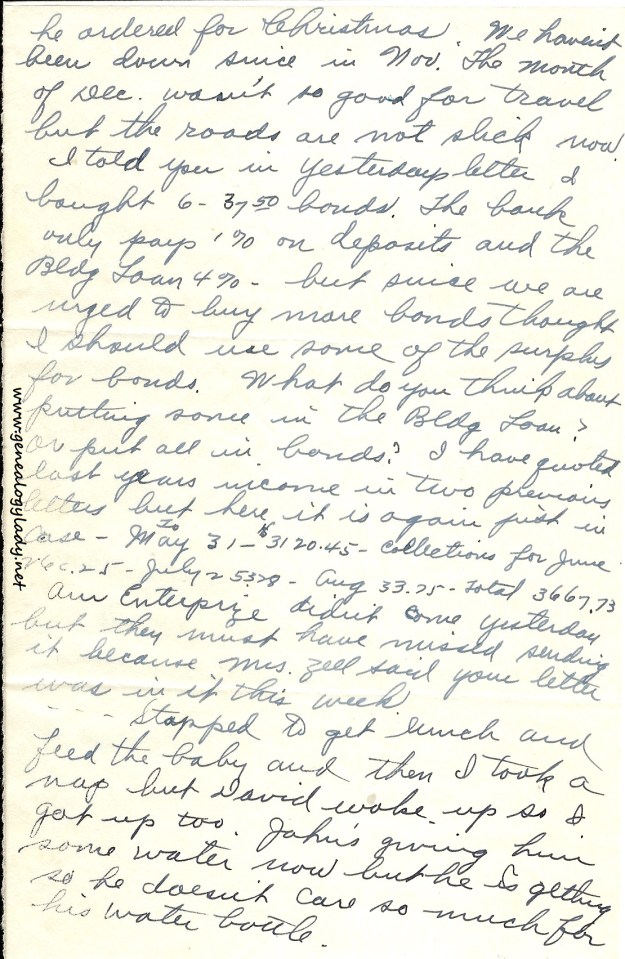 he ordered for Christmas. We haven't
been down since in Nov. The month
of Dec. wasn't so good for travel
but the roads are not slick now.
I told you in yesterday letter I
bought 6 - 37 50 bonds. The bank
only pays 1% on deposits and the
Bldg Loan 4% - but since we are
urged to buy more bonds thought
I should use some of the surplus
for bonds. What do you think about
putting some in the Bldg Loan?
or put all in bonds? I have quoted
last years income in two previous
letters but here it is again just in
case - to May 31 - $3120.45 - collections for June
260.25 - July 253.28 - Aug 33.75 - Total 3667.73
Am Enterprize didn't come yesterday
but they must have missed sending
it because Mrs. Zell said your letter
was in it this week
- - - - Stopped to get lunch and
feed the baby and then I took a
nap but David woke up so I
got up too. John's giving him
some water now but he is getting
so he doesn't care so much for
his water bottle.
www.genealogylady.net